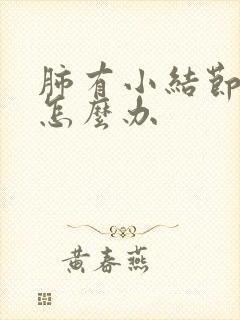 肺有小結節
怎麼办
黄春燕